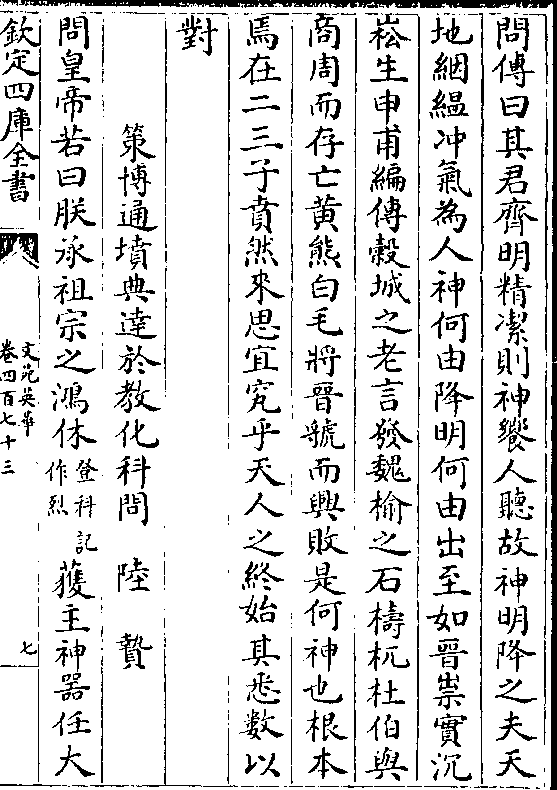 問傳曰其君齊明精潔則神饗人聽故神明降之夫天
地絪緼冲氣為人神何由降明何由出至如晉祟實沉
崧生申甫編傳榖城之老言發魏榆之石檮杌杜伯與
商周而存亡黄熊白毛將晉虢而興敗是何神也根本
焉在二三子賁然來思宜究乎天人之終始其悉數以
對
策博通墳典達於教化科問 陸贄
問皇帝若曰朕承祖宗之鴻休登科記作烈獲主神器任大
欽定四庫全書
文苑英華
卷四百七十三
七